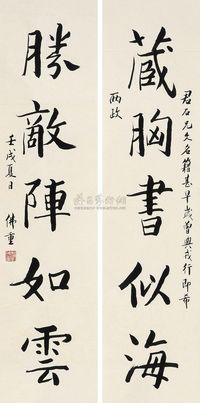 君石兄文名籍甚早歲曾與戎行即希
兩政
藏胸書似海
勝敵陣如雲
壬戌夏日
佛重